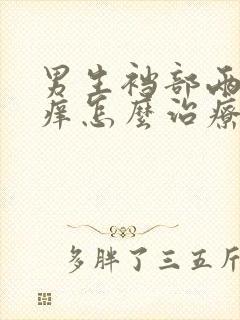 男生裆部两
痒怎麽治療
多胖了三五斤